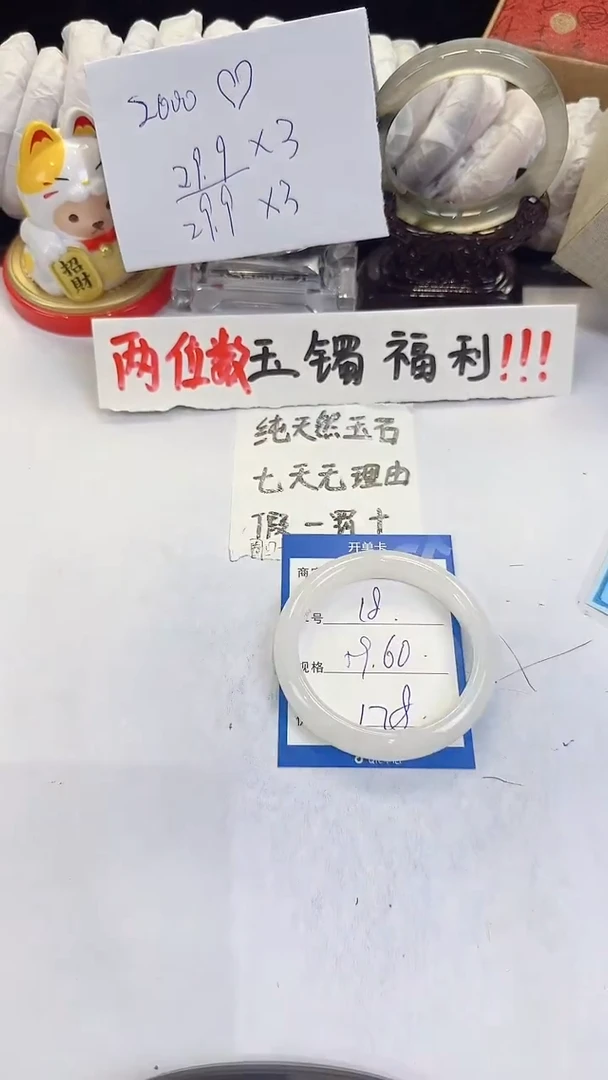 2000 ♡
29.9 ×3
29.9 ×3
招財
两位数玉镯福利!!!
纯天然玉石
七天无理由
假一罚十
开单卡
号 18.
规格 59.60.
178.